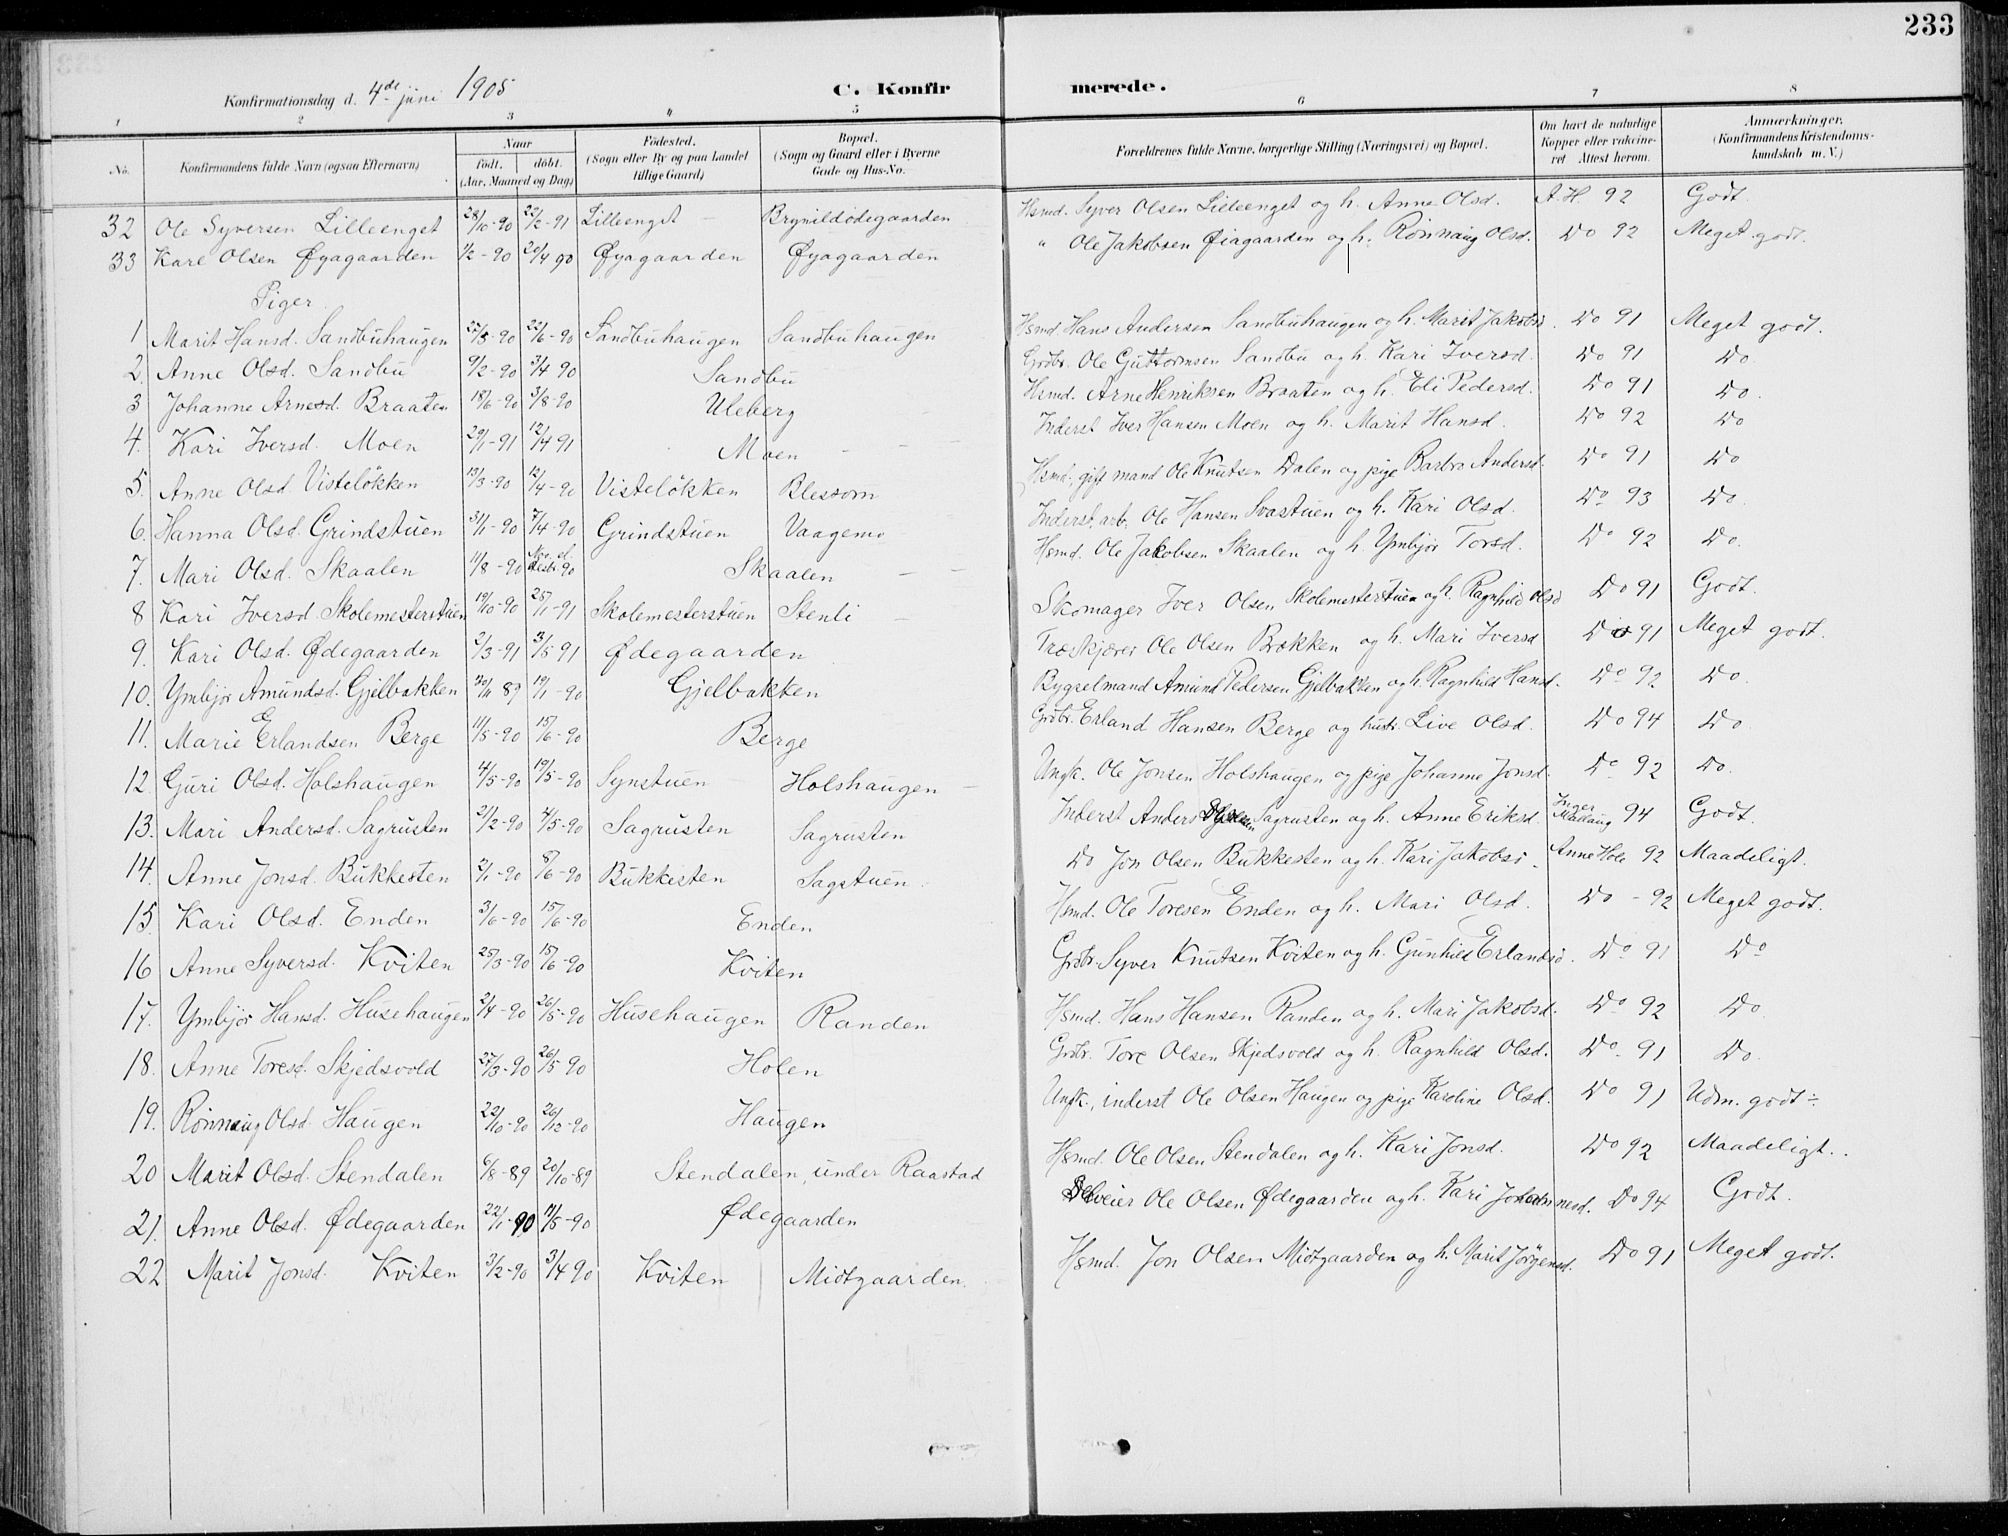 233
Konfirmationsdag d. 4de juni 1905 C. Konfirmerede.
1 2 3 4 5 6 7 8
No. Konfirmandens fulde Navn (ogsaa Efternavn) Naar födt. döbt. (Aar, Maaned og Dag) Födested. (Sogn eller By og paa Landet tillige Gaard) Bopæl. (Sogn og Gaard eller i Byerne Gade og Hus-No. Forældrenes fulde Navne, borgerlige Stilling (Næringsvei) og Bopæl. Om havt de naturlige Kopper eller vakcineret Attest herom. Anmærkninger. (Konfirmandens Kristendomskundskab m. V.)
32 Ole Syversen Lilleenget 28/10-90 22/2-91 Lilleenget - Brynildödegaarden Hsmd. Syver Olsen Lilleenget og h. Anne Olsd. A. H. 92 Godt.
33 Kare Olsen Øyagaarden 1/2-90 20/4 90 Øyagaarden Øyagaarden " Ole Jakobsen Øiagaarden og h. Rönnaug Olsd. Do 92 Meget godt.
Piger.
1 Marit Hansd. Sandbuhaugen 27/5-90 22/6-90 Sandbuhaugen Sandbuhaugen Hsmd Hans Andersen Sandbuhaugen og h. Marit Jakobsd. Do 91 Meget godt.
2. Anne Olsd. Sandbu 9/2-90 3/4 90 Sandbu Grdbr. Ole Guttormsen Sandbu og h. Kari Iversd. Do 91 Do
3 Johanne Arnesd. Braaten 18/6-90 3/8-90 Uleberg Hsmd. Arne Henriksen Braaten og h. Eli Pedersd. Do 91 Do.
4. Kari Iversd. Moen 29/1-91 12/4 91 Moen - Inderst Iver Hansen Moen og h. Marit Hansd. Do 92 Do
5. Anne Olsd Visteløkken 13/3-90 12/4-90 Visteløkken Blessom Hsmd., gift mand Ole Knutsen Dalen og pige Barbro Andersd. Do 91 Do
6. Hanna Olsd. Grindstuen 31/1-90 7/4-90 Grindstuen Vaagemo Inderst, arb. Ole Hansen Svastuen og h. Kari Olsd. Do 93 Do.
7. Mari Olsd. Skaalen 11/8-90 Nov. el. desbr. 90 Skaalen - - Hsmd. Ole Jakobsen Skaalen og h. Ymbjör Torsd. Do 92 Do.
8 Kari Iversd. Skolemesterstuen 19/10-90 25/11-91 Skolemesterstuen Stenli - Skomager Iver Olsen Skolemesterstuen og h. Ragnhild Olsd Do 91 Godt.
9. Kari Olsd. Ødegaarden 2/3-91 3/5 91 Ødegaarden Træskjærer Ole Olsen Brekken og h. Mari Iversd Do 91 Meget godt.
10. Ymbjør Amundsd. Gjelbakken 20/11 89 19/1-90 Gjelbakken Bygselmand Amund Pedersen Gjelbakken og h. Ragnhild Hansd. Do 92 Do.
11. Marie Erlandsen Berge 11/5-90 15/6-90 Berge Grdbr. Erland Hansen Berge og hustr. Live Olsd. Do 94 Do
12 Guri Olsd. Holshaugen 4/5-90 19/5-90 Synstuen Holshaugen - Ungk. Ole Jonsen Holshaugen og pige Johanne Jonsd. Do 92 Do.
13. Mari Andersd. Sagrusten 21/2-90 4/5-90 Sagrusten Sagrusten Inderst Anders Sagrusten og h. Anne Eriksd. 94 Godt.
14. Anne Jonsd. Bukkesten 2/1-90 8/6-90 Bukkesten Sagstuen. Do Jon Olsen Bukkesten og h. Kari Jakobsd. Anne Hole 92 Maadeligt.
15 Kari Olsd. Enden 3/6-90 15/6-90 Enden Hsmd. Ole Toresen Enden og h. Mari Olsd. Do - 92 Meget godt.
16 Anne Syversd. Kviten 25/3-90 15/6-90 Kviten Grdbr. Syver Knutsen Kviten og h. Gunhild Erlandsd. Do 91 Do
17. Ymbjør Hansd. Husehaugen 2/4-90 26/5-90 Husehaugen Randen Hsmd. Hans Hansen Randen og h. Mari Jakobsd. Do 92 Do
18. Anne Toresd. Skjedsvold 27/3-90 26/5 90 Holen Grdbr. Tore Olsen Skjedsvold og h. Ragnhild Olsd. Do. 91 Do.
19. Rönnaug Olsd. Haugen 22/10-90 26/12-90 Haugen Ungk., inderst Ole Olsen Haugen og pige Karoline Olsd. Do 91 Udm. godt ÷
20 Marit Olsd. Stendalen 6/8-89 20/10-89 Stendalen, under Raastad Hsmd. Ole Olsen Stendalen og h. Kari Jonsd. Do 92 Maadeligt..
21. Anne Olsd. Ødegaarden 22/1-90 11/5-90 Ødegaarden Selveier Ole Olsen Ødegaarden og h. Kari Johannesd. Do 94 Godt.
22 Marit Jonsd. Kviten 3/2-90 3/4 90 Kviten Midtgaarden. Hsmd. Jon Olsen Midtgaarden og h. Marit Jörgensd. Do 91 Meget godt.